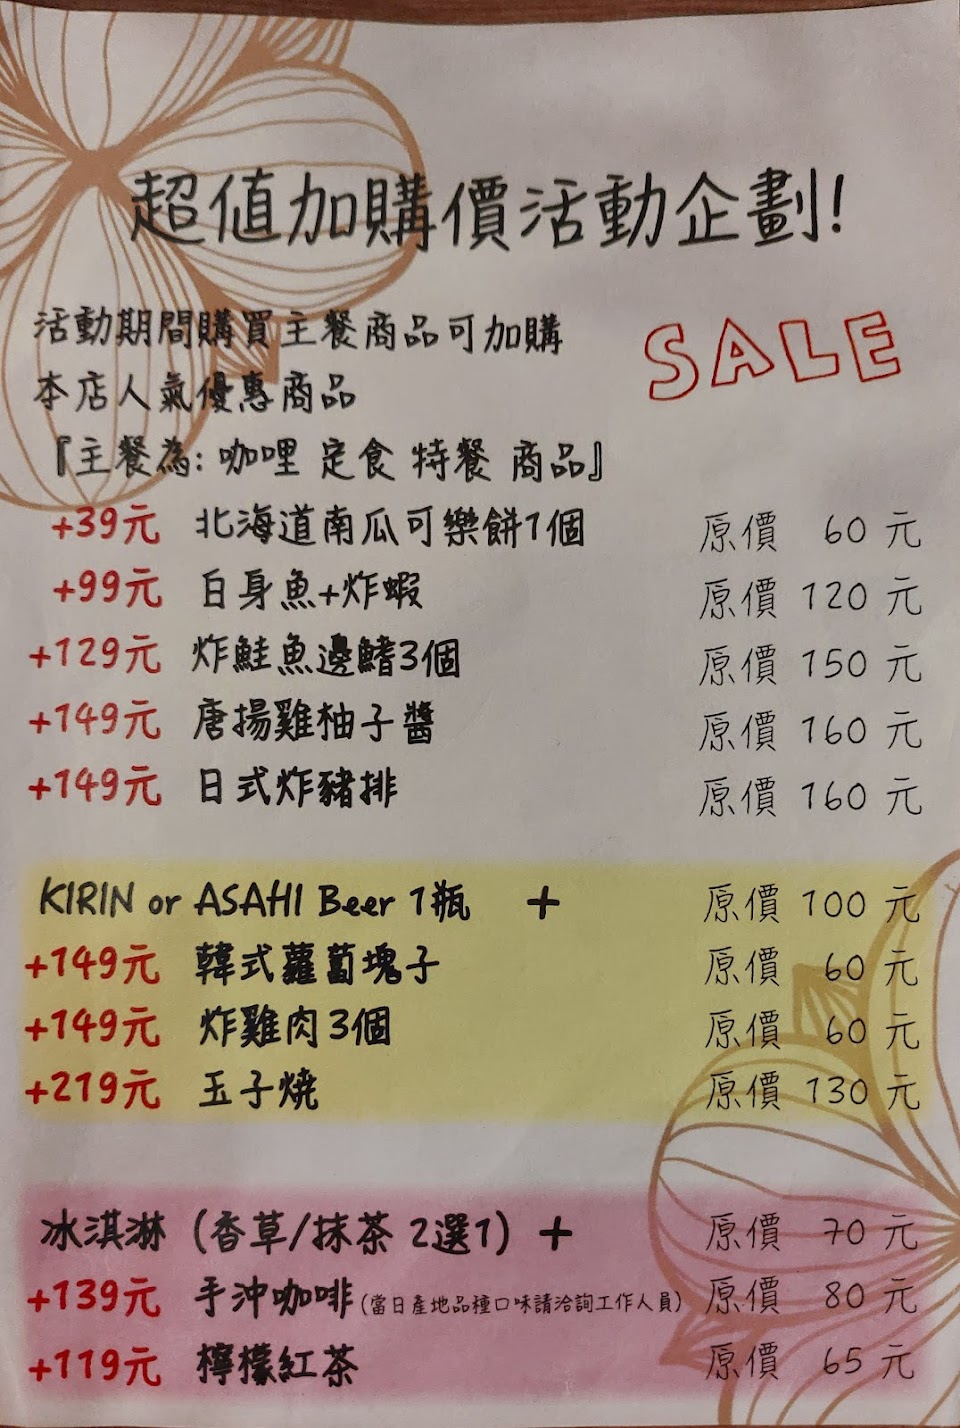 超值加購價活動企劃!
活動期間購買主餐商品可加購
本店人氣優惠商品
SALE
『主餐為: 咖哩 定食 特餐 商品』
+39元 北海道南瓜可樂餅1個 原價 60 元
+99元 白身魚+炸蝦 原價 120 元
+129元 炸鮭魚邊鰭3個 原價 150 元
+149元 唐揚雞柚子醬 原價 160 元
+149元 日式炸豬排 原價 160 元
KIRIN or ASAHI Beer 1瓶 + 原價 100 元
+149元 韓式蘿蔔塊子 原價 60 元
+149元 炸雞肉3個 原價 60 元
+219元 玉子燒 原價 130 元
冰淇淋 (香草/抹茶 2選1) + 原價 70 元
+139元 手沖咖啡(當日產地品種口味請洽詢工作人員) 原價 80 元
+119元 檸檬紅茶 原價 65 元